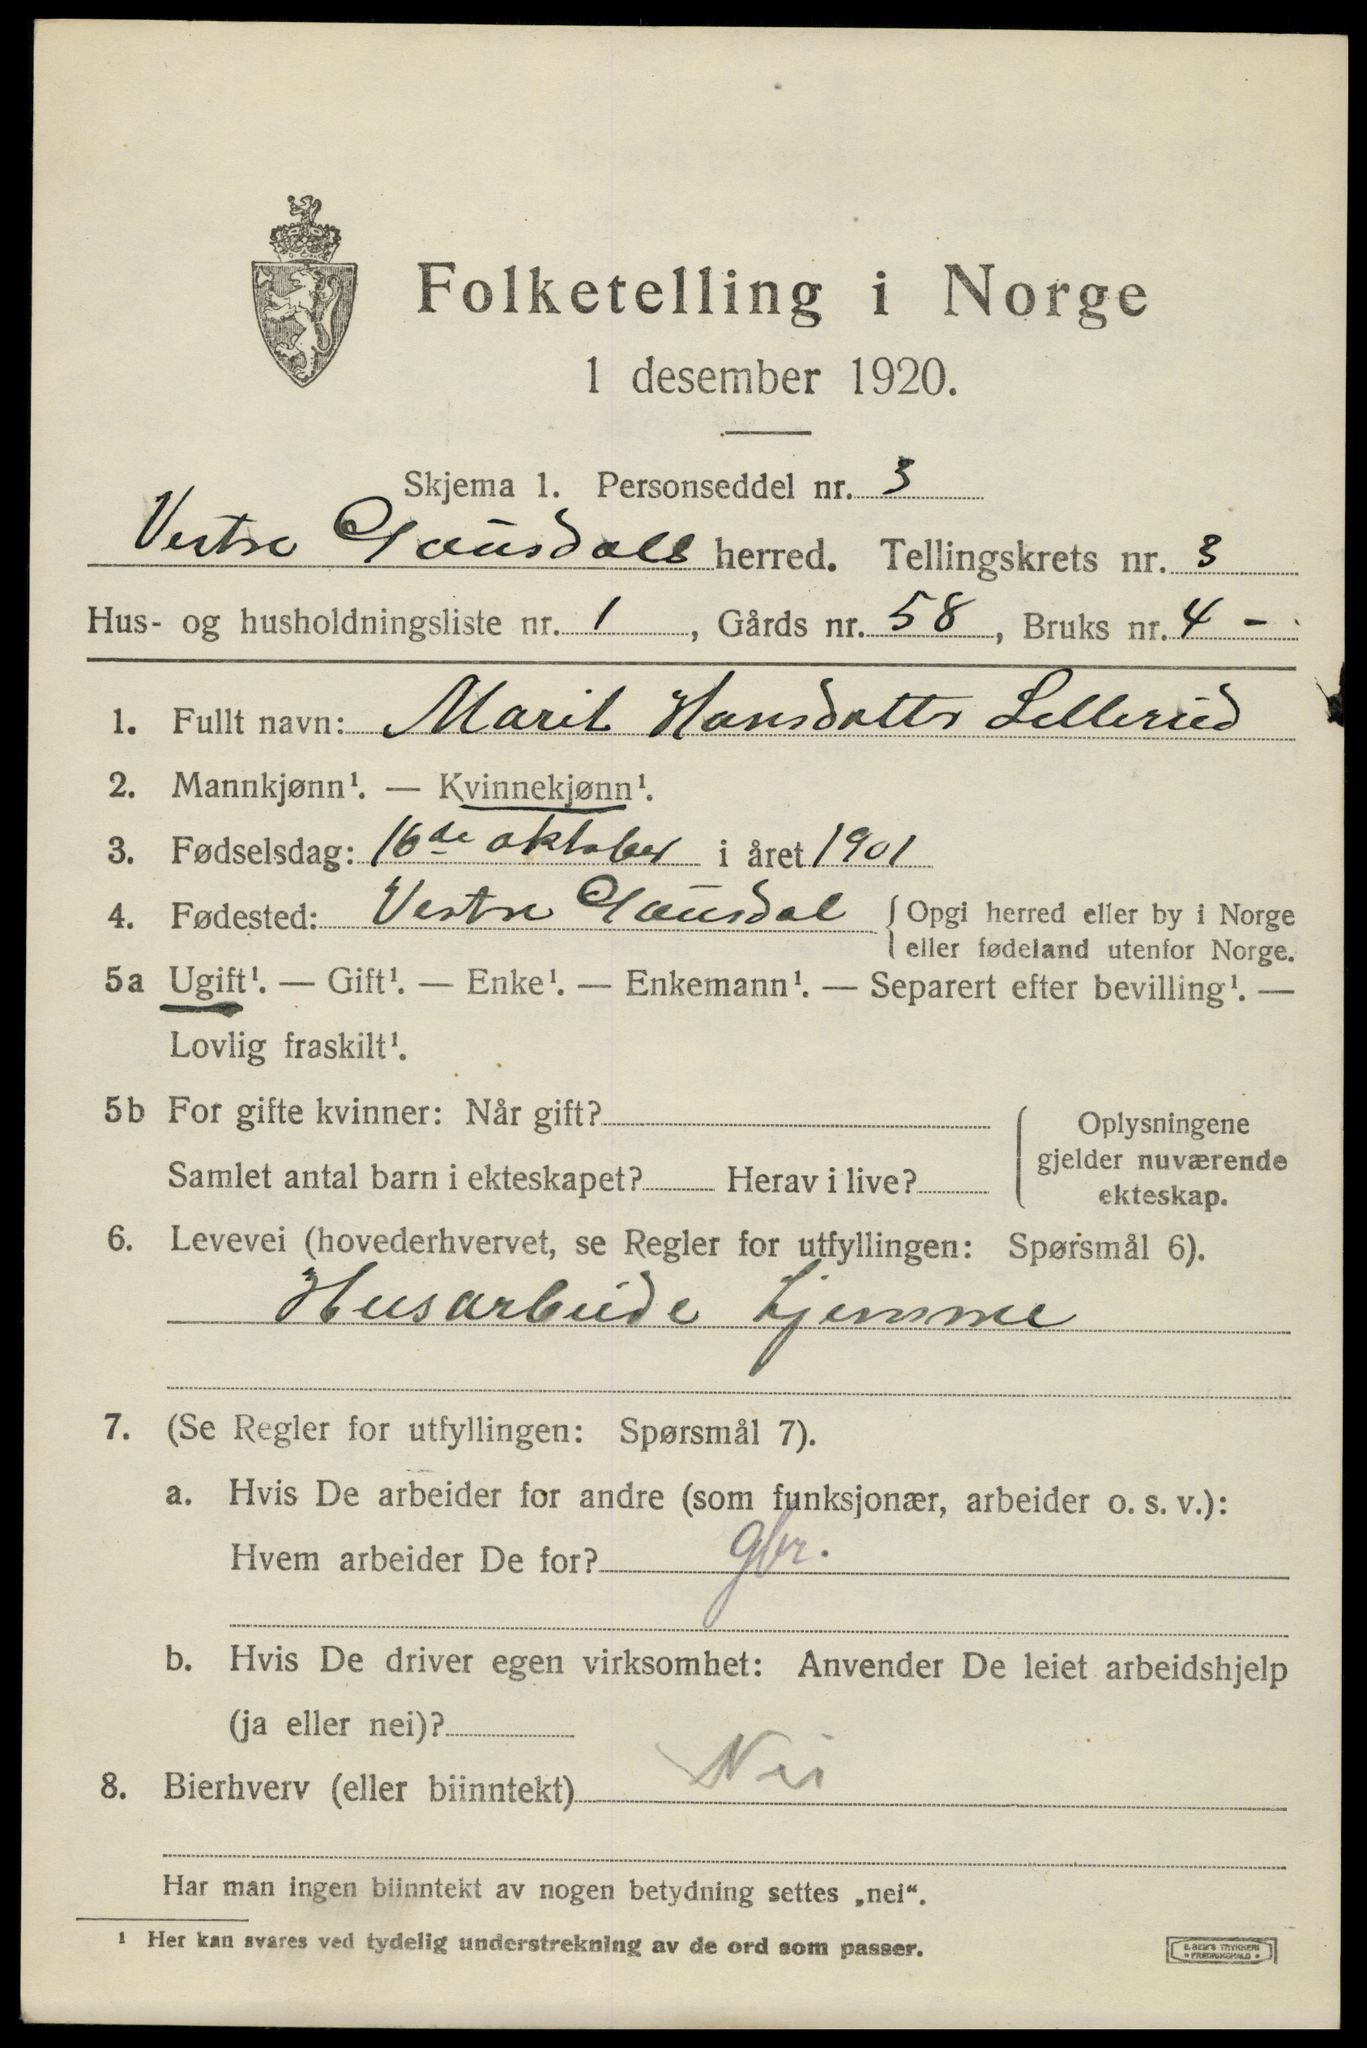 Folketelling i Norge
1 desember 1920.
Skjema 1. Personseddel nr. 3
Vestre Gausdals herred. Tellingskrets nr. 3
Hus- og husholdningsliste nr. 1, Gårds nr. 58, Bruks nr. 4 -
1. Fullt navn: Marit Hansdatter Lillerud
2. Mannkjønn¹. — Kvinnekjønn¹.
3. Fødselsdag: 16de oktober i året 1901
4. Fødested: Vestre Gausdal { Opgi herred eller by i Norge
eller fødeland utenfor Norge.
5a Ugift¹. — Gift¹. — Enke¹. — Enkemann¹. — Separert efter bevilling¹. —
Lovlig fraskilt¹.
5b For gifte kvinner: Når gift?
Samlet antal barn i ekteskapet? Herav i live?
Oplysningene
gjelder nuværende
ekteskap.
6. Levevei (hovederhvervet, se Regler for utfyllingen: Spørsmål 6).
Husarbeide hjemme
7. (Se Regler for utfyllingen: Spørsmål 7).
a. Hvis De arbeider for andre (som funksjonær, arbeider o. s. v.):
Hvem arbeider De for? gbr.
b. Hvis De driver egen virksomhet: Anvender De leiet arbeidshjelp
(ja eller nei)?
8. Bierhverv (eller biinntekt) Nei
Har man ingen biinntekt av nogen betydning settes „nei“.
¹ Her kan svares ved tydelig understrekning av de ord som passer.
E. SEM'S TRYKKERI
FREDRIKSHALD